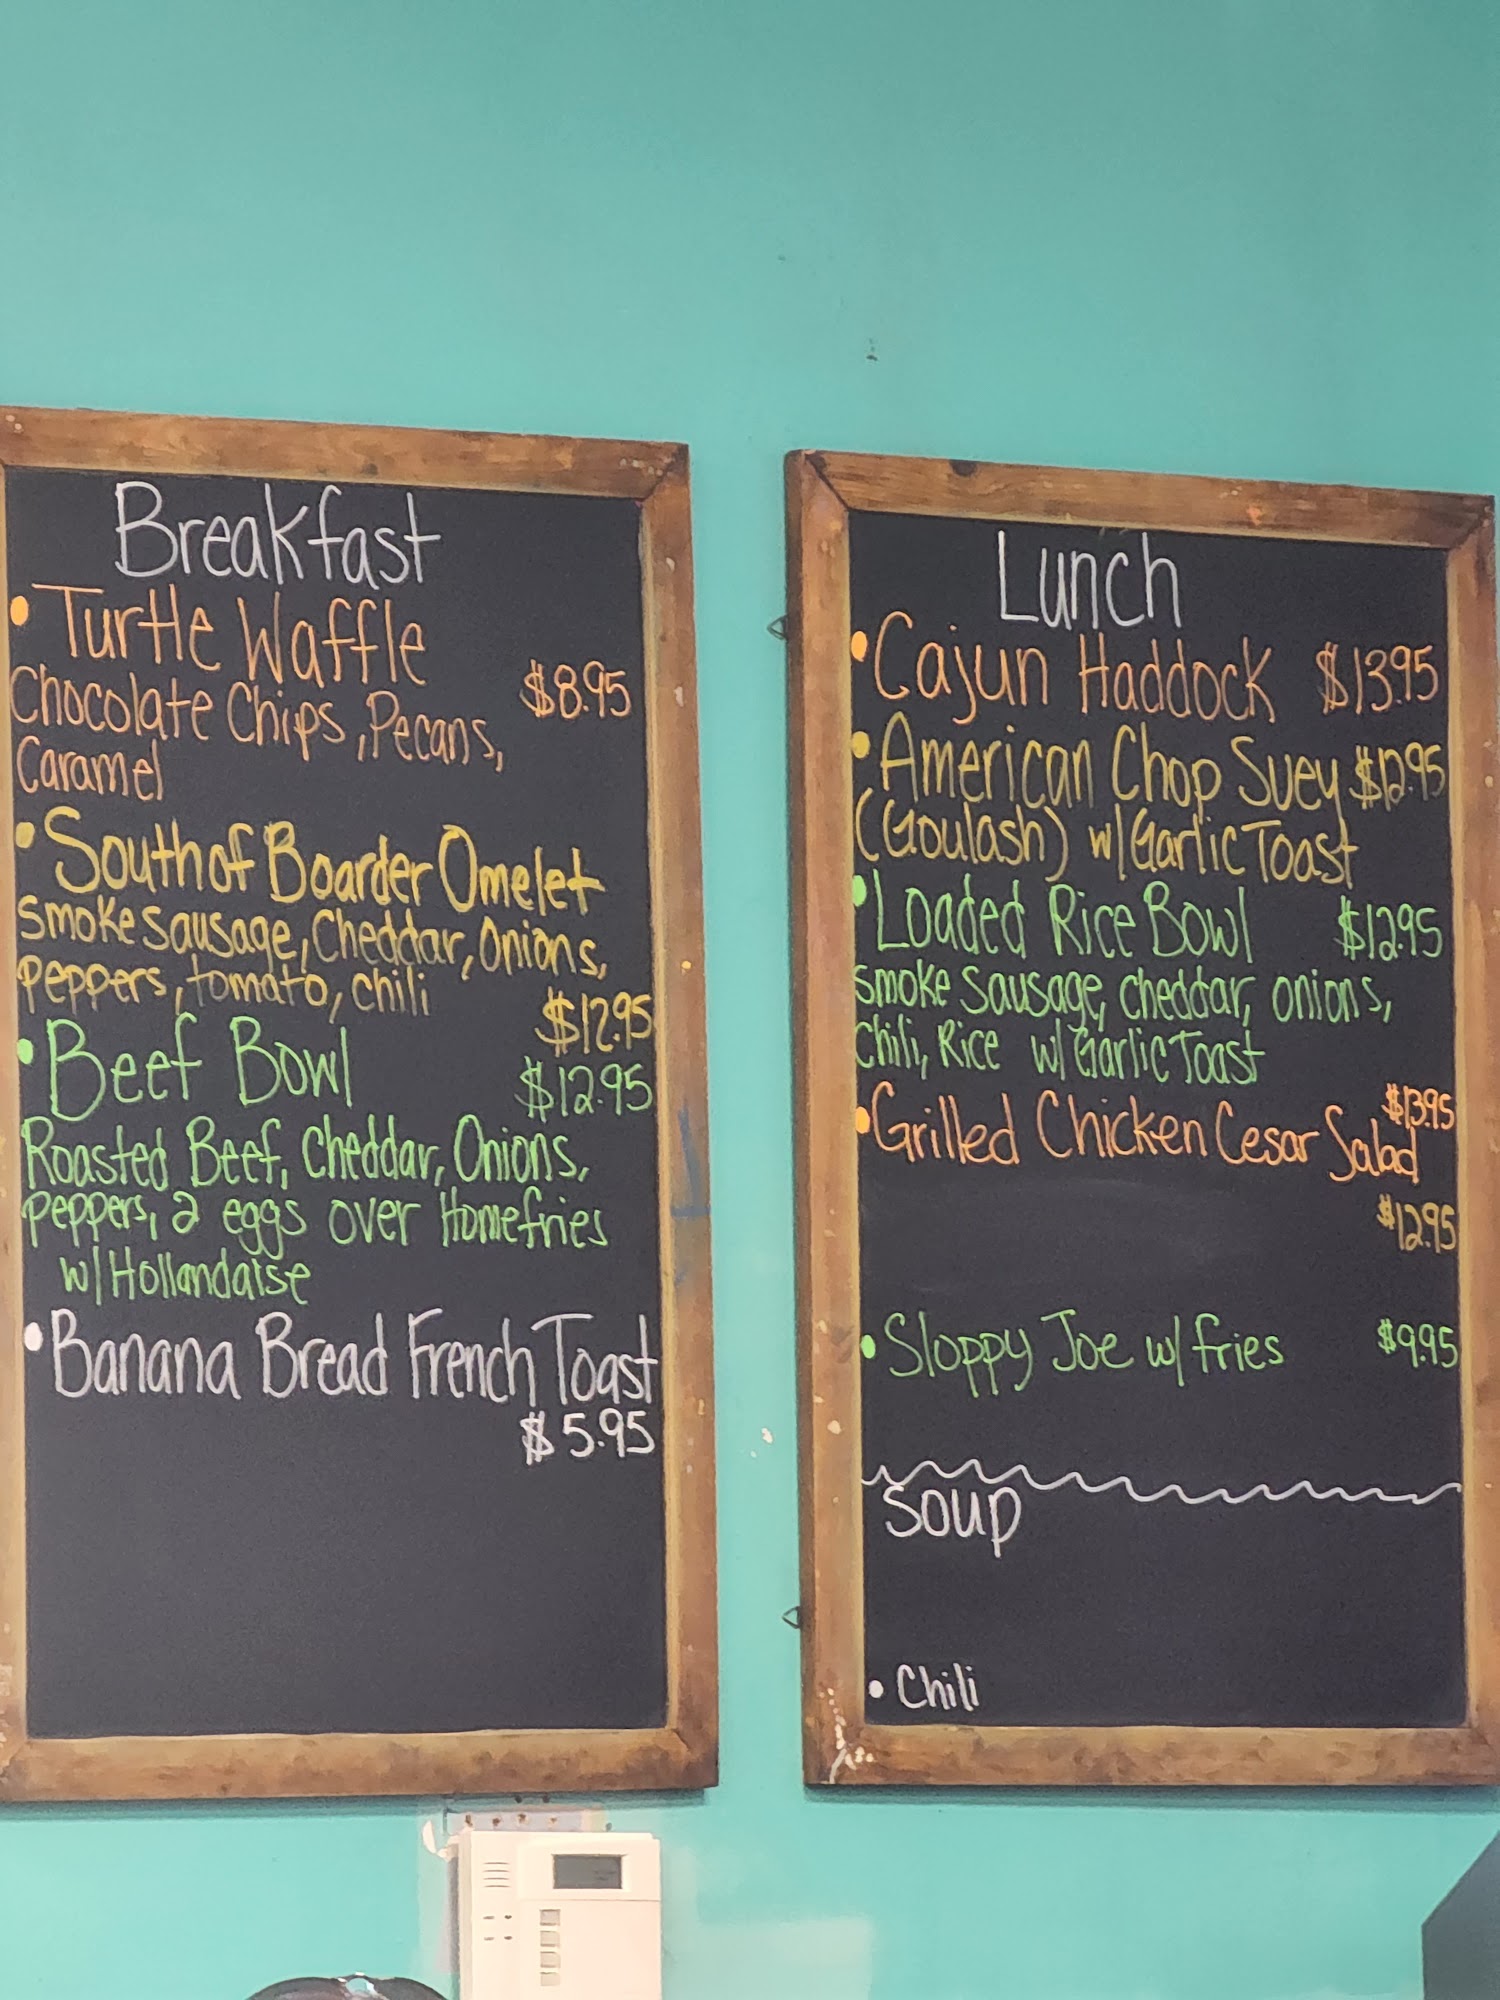 Breakfast
• Turtle Waffle
$8.95
Chocolate Chips, Pecans,
Caramel
• South of Boarder Omelet
Smoke sausage, Cheddar, Onions,
Peppers, tomato, chili
$12.95
• Beef Bowl $12.95
Roasted Beef, Cheddar, Onions,
Peppers, 2 eggs over Homefries
w/ Hollandaise
• Banana Bread French Toast
$5.95
Lunch
• Cajun Haddock $13.95
• American Chop Suey $12.95
(Goulash) w/ Garlic Toast
• Loaded Rice Bowl $12.95
Smoke Sausage, Cheddar, onions,
Chili, Rice w/ Garlic Toast
$13.95
• Grilled Chicken Cesar Salad
$12.95
• Sloppy Joe w/ fries $9.95
Soup
• Chili